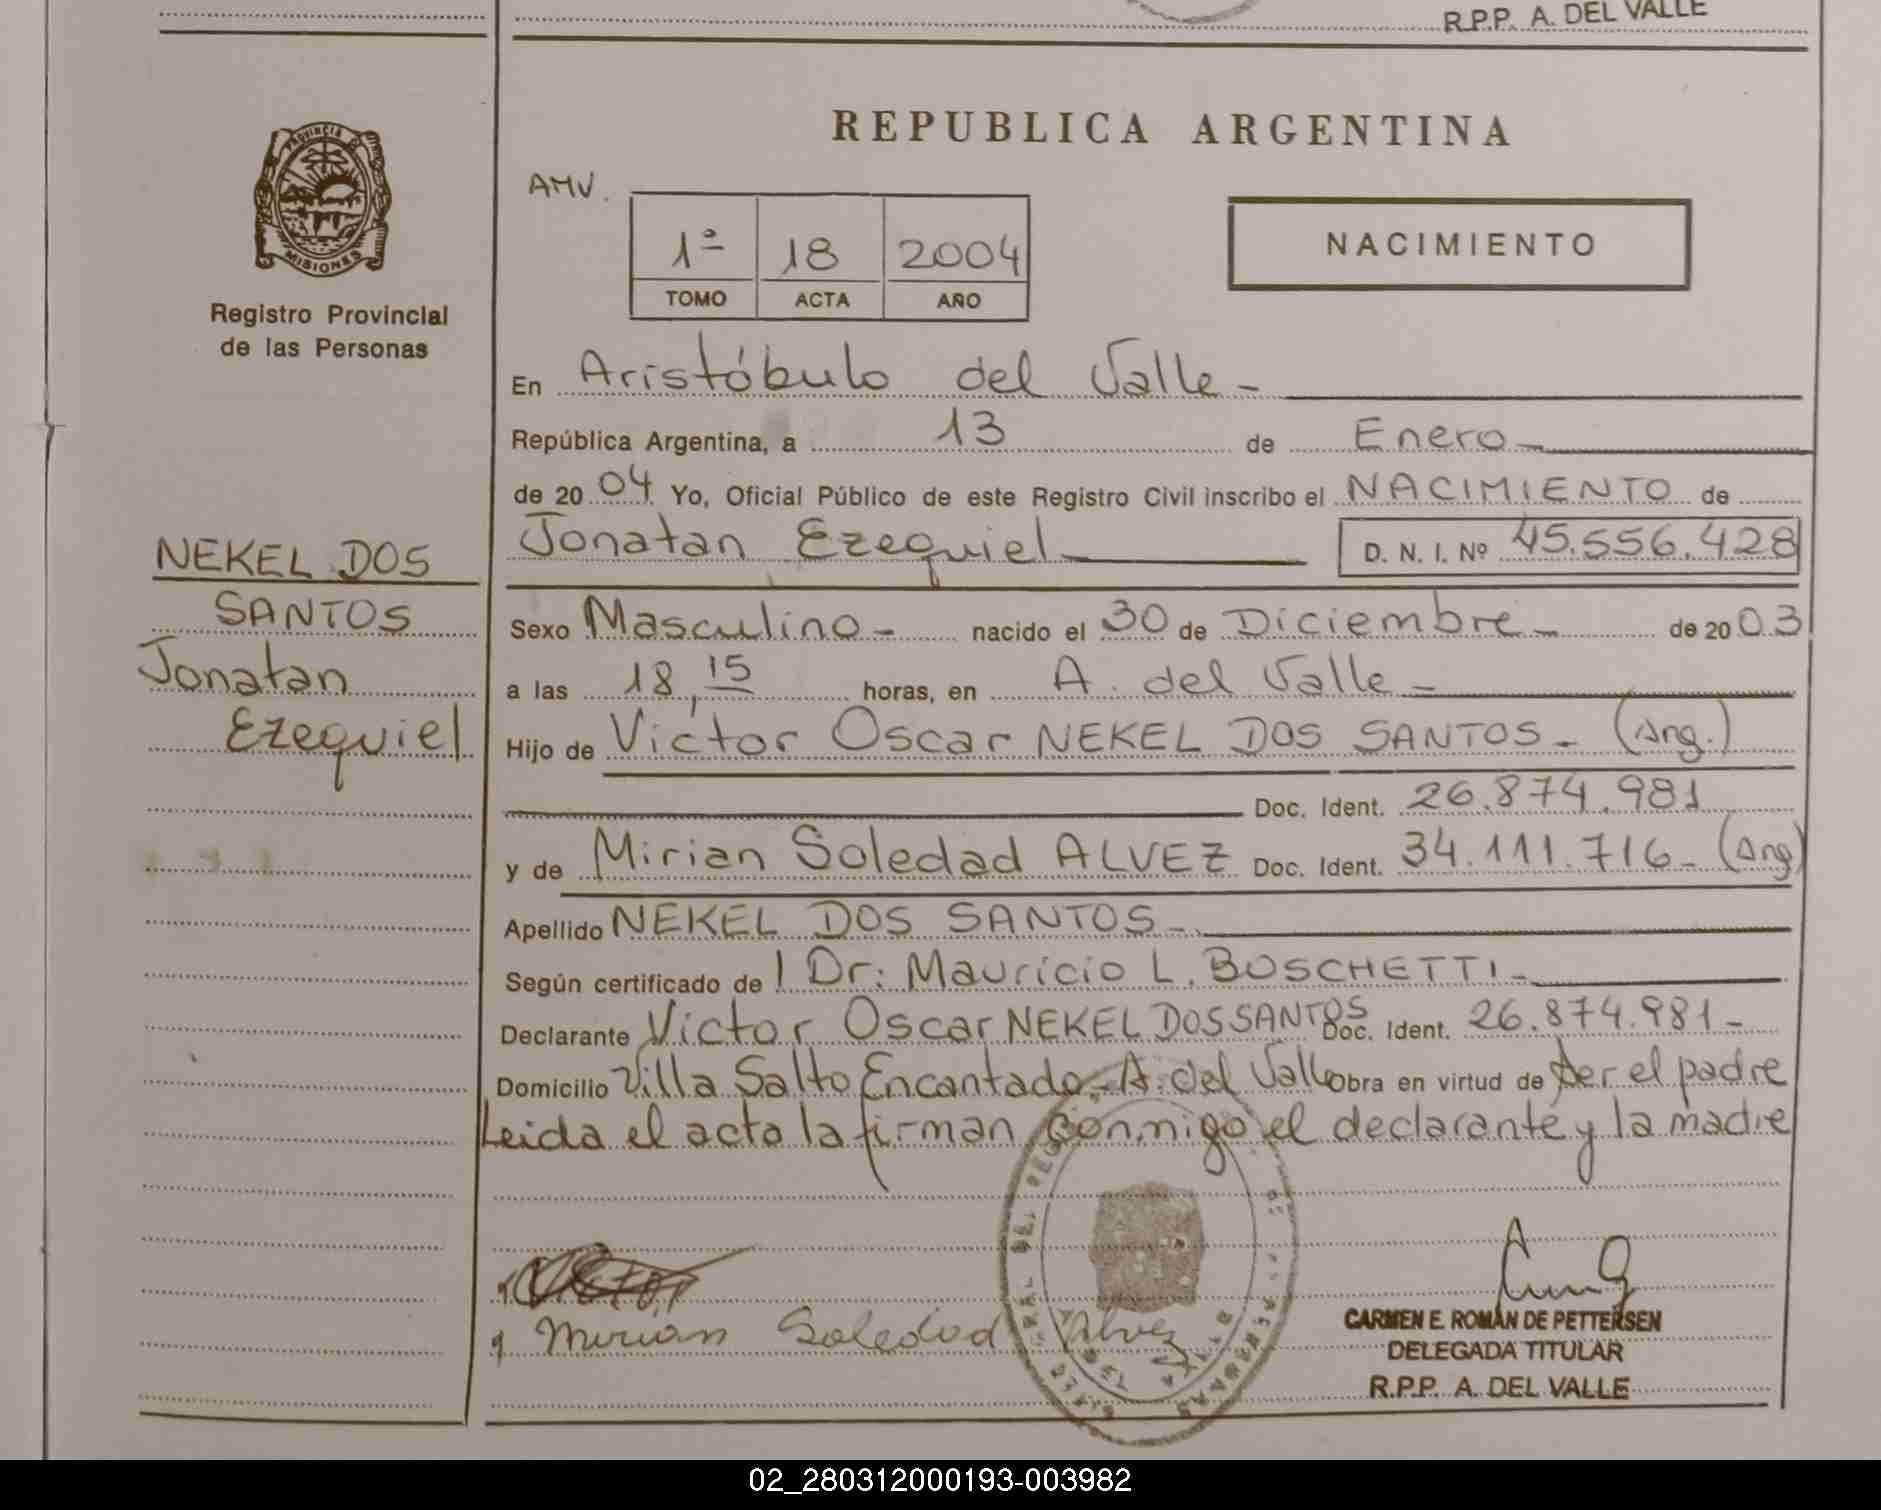 R.P.P. A. DEL VALLE
PROVINCIA
MISIONES
Registro Provincial
de las Personas
NEKEL DOS
SANTOS
Jonatan
Ezequiel
REPUBLICA ARGENTINA
AMV.
1º 18 2004
TOMO ACTA AÑO
NACIMIENTO
En Aristóbulo del Valle -
República Argentina, a 13 de Enero -
de 20 04 Yo, Oficial Público de este Registro Civil inscribo el NACIMIENTO de
Jonatan Ezequiel D. N. I. Nº 45.556.428
Sexo Masculino - nacido el 30 de Diciembre - de 20 03
a las 18,15 horas, en A. del Valle -
Hijo de Víctor Oscar NEKEL DOS SANTOS - (Arg.)
Doc. Ident. 26.874.981
y de Mirian Soledad ALVEZ Doc. Ident. 34.111.716 - (Arg)
Apellido NEKEL DOS SANTOS -
Según certificado de l Dr: Mauricio L. BOSCHETTI -
Declarante Víctor Oscar NEKEL DOS SANTOS Doc. Ident. 26.874.981 -
Domicilio Villa Salto Encantado - A. del Valle Obra en virtud de ser el padre
Leida el acta la firman conmigo el declarante y la madre
Mirian Soledad Alvez
CARMEN E. ROMÁN DE PETTERSEN
DELEGADA TITULAR
R.P.P. A. DEL VALLE
02_280312000193-003982